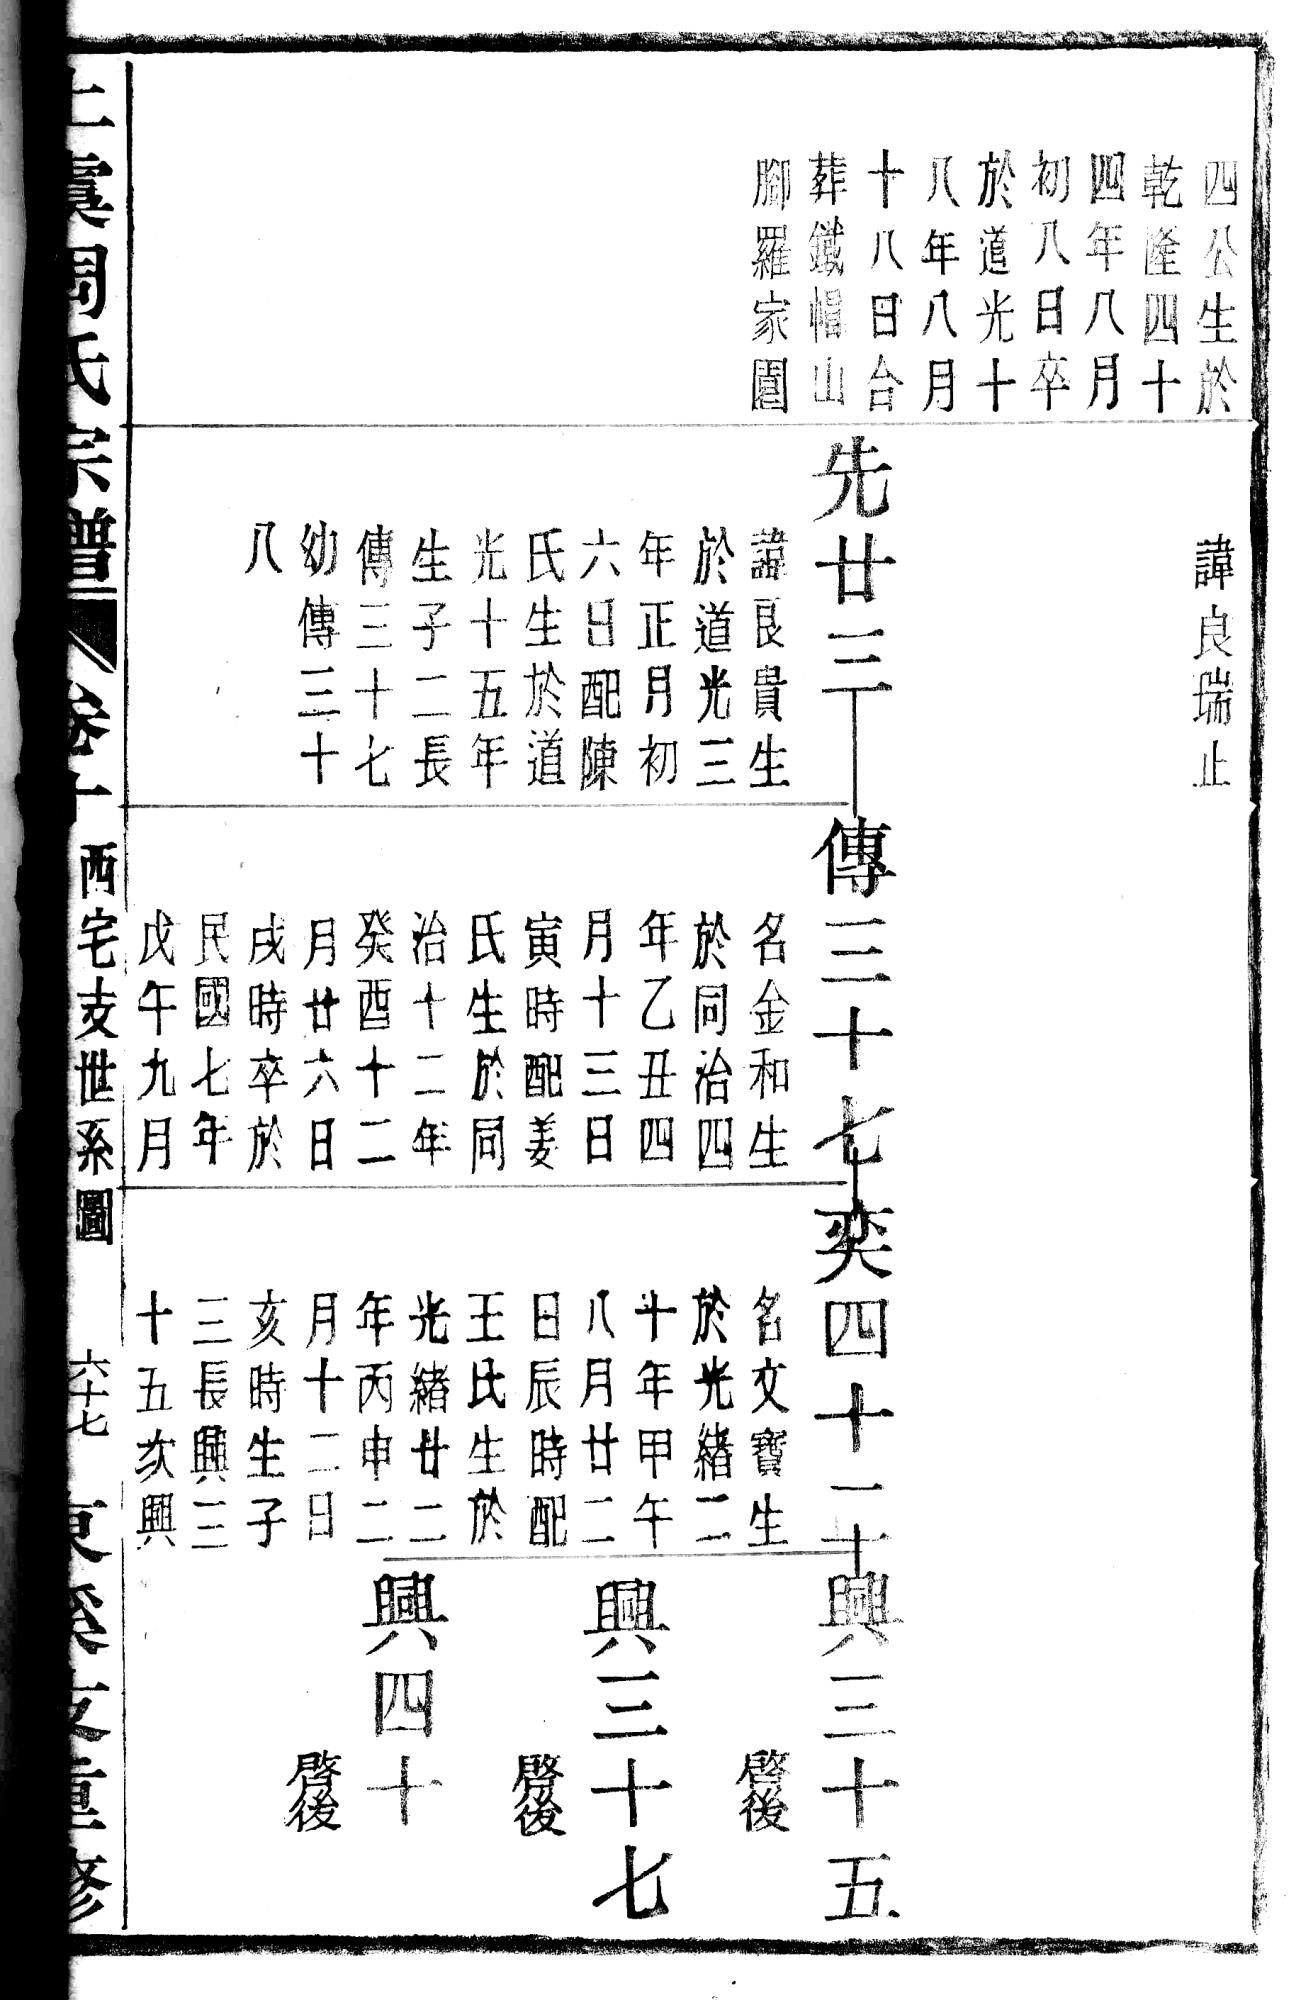 四公生於
乾隆四十
四年八月
初八日卒
於道光十
八年八月
十八日合
葬鐵帽山
腳羅家園
諱良瑞止
先廿三
諱良貴生
於道光三
年正月初
六日配陳
氏生於道
光十五年
生子二長
傳三十七
幼傳三十
八
傳三十七
名金和生
於同治四
年乙丑四
月十三日
寅時配姜
氏生於同
治十二年
癸酉十二
月廿六日
戌時卒於
民國七年
戊午九月
奕四十一
名文寶生
於光緒二
十年甲午
八月廿二
日辰時配
王氏生於
光緒廿二
年丙申二
月十二日
亥時生子
三長興三
十五次興
興三十五
啓後
興三十七
啓後
興四十
啓後
上虞周氏宗譜
卷十
西宅支世系圖
六十七
東溪支重修